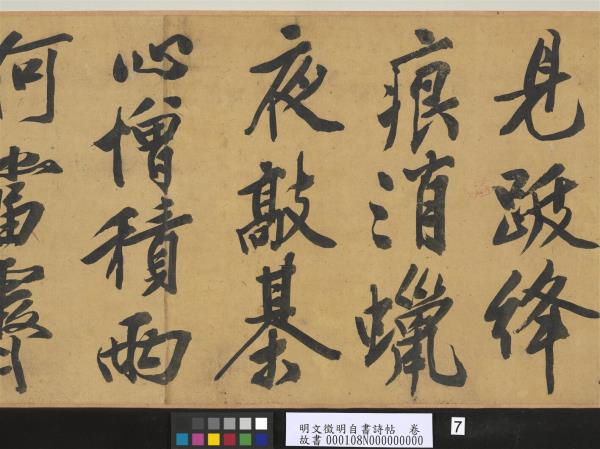 見跋絳
痕消蠟
夜敲棊
心憎積雨
何當霽
明文徵明自書詩帖 卷
故書000108N000000000
7